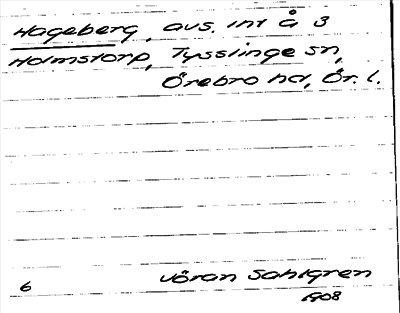 Hageberg, avs. int å 3
Holmstorp, Tysslinge sn,
Örebro hd, Ör. l.
6 Jöran Sahlgren
1908